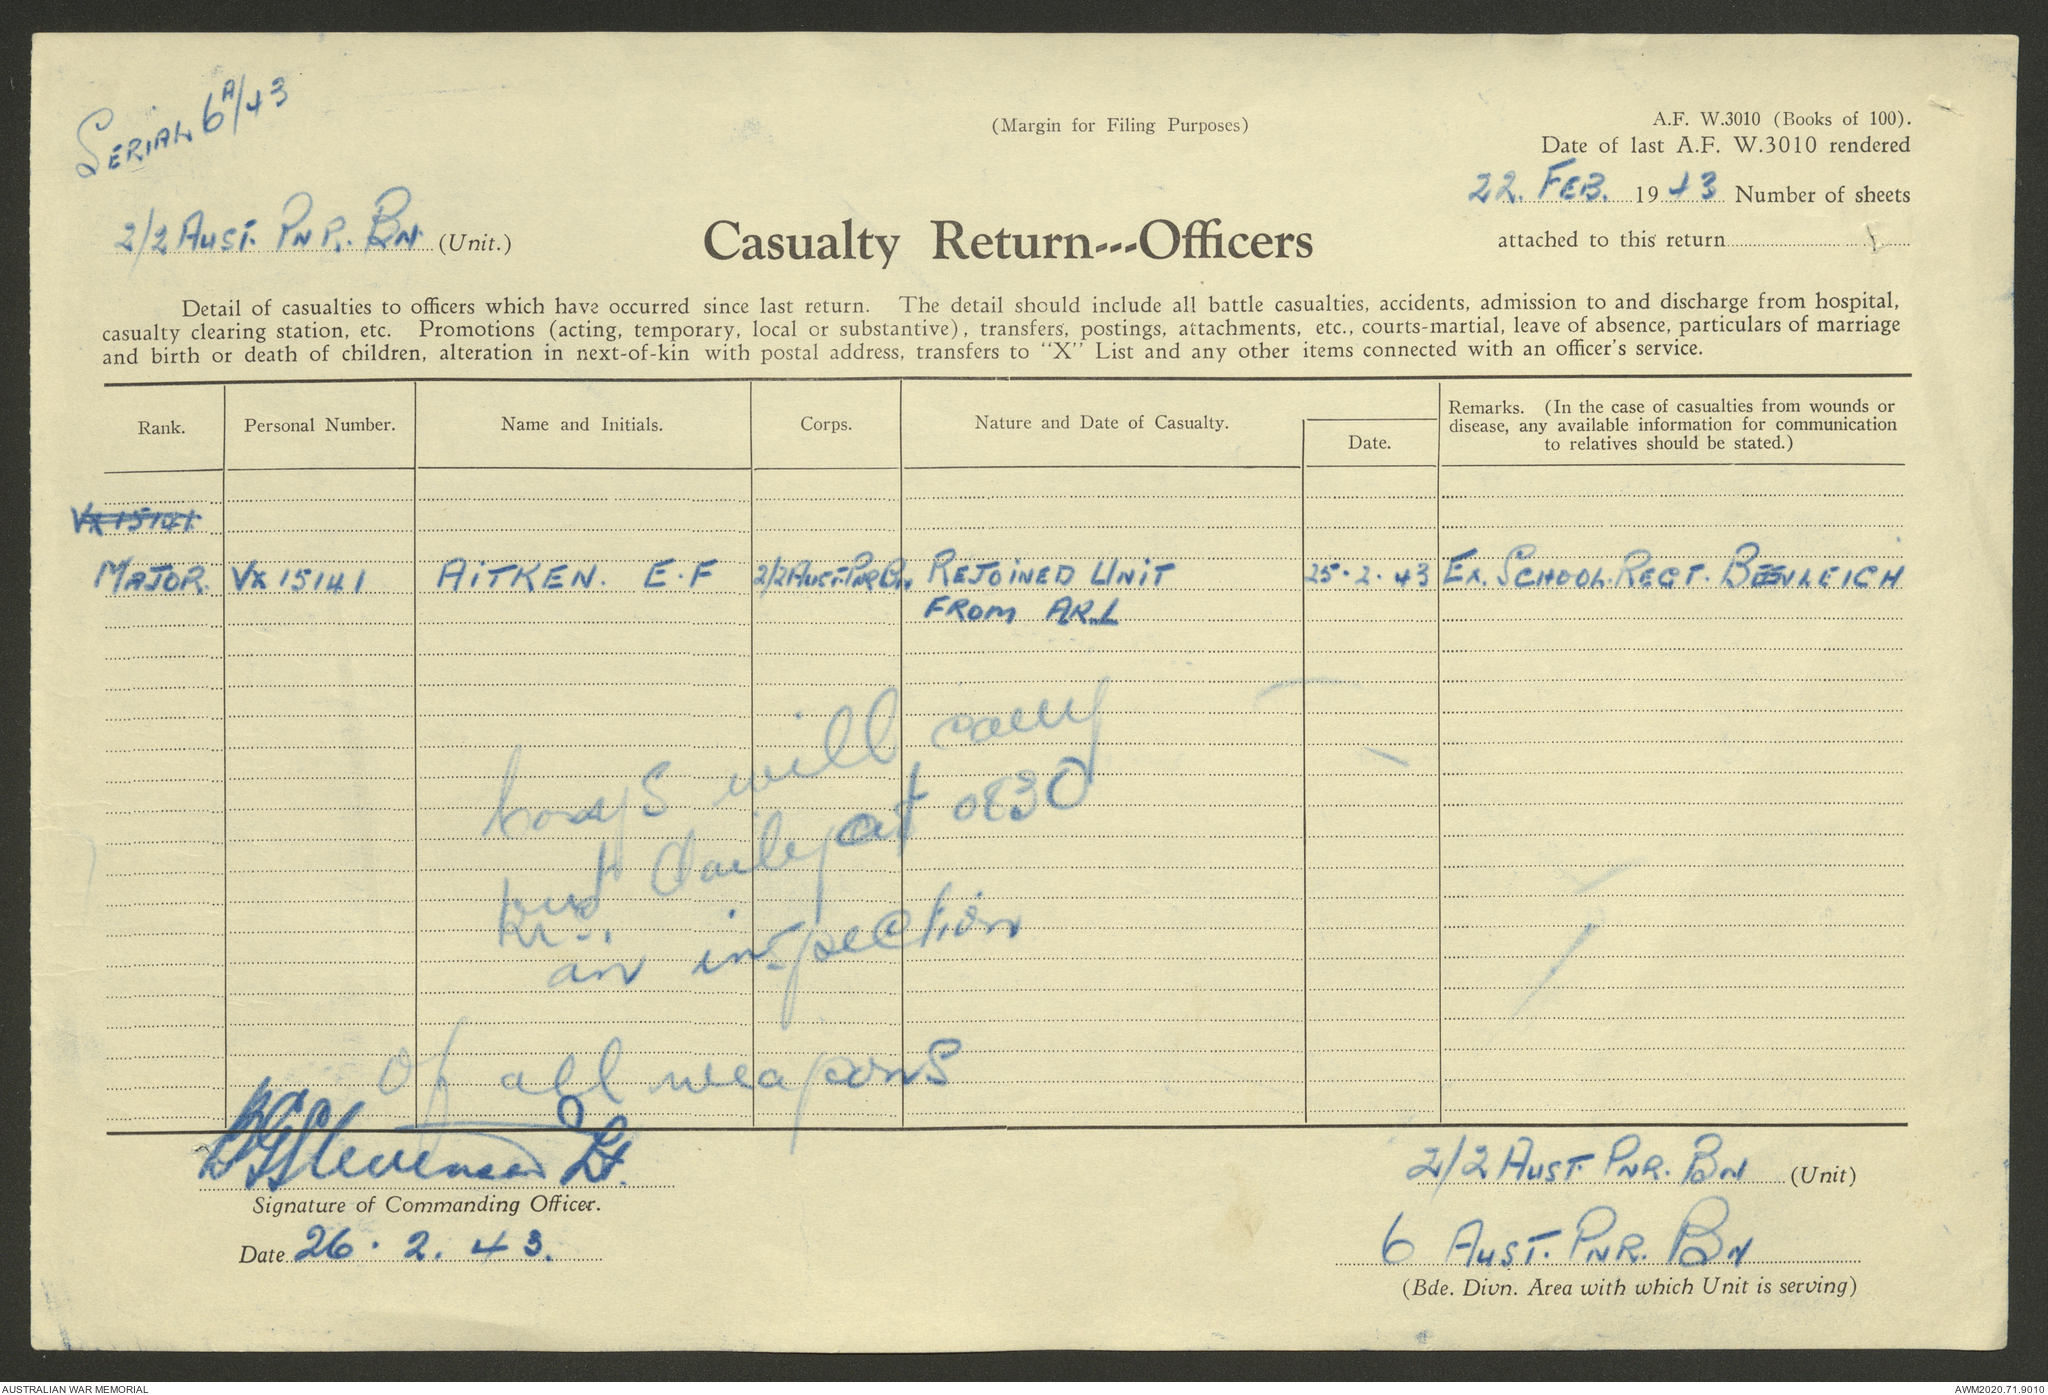 SERIAL 6A/43
(Margin for Filing Purposes)
A.F. W.3010 (Books of 100).
Date of last A.F. W.3010 rendered
22. FEB. 1943 Number of sheets
attached to this return 1
2/2 AUST. PNR. BN. (Unit.)
Casualty Return---Officers
Detail of casualties to officers which have occurred since last return. The detail should include all battle casualties, accidents, admission to and discharge from hospital,
casualty clearing station, etc. Promotions (acting, temporary, local or substantive), transfers, postings, attachments, etc., courts-martial, leave of absence, particulars of marriage
and birth or death of children, alteration in next-of-kin with postal address, transfers to "X" List and any other items connected with an officer's service.
Rank. Personal Number. Name and Initials. Corps. Nature and Date of Casualty. Date. Remarks. (In the case of casualties from wounds or
disease, any available information for communication
to relatives should be stated.)
VX 15141
MAJOR. VX 15141 AITKEN. E.F 2/2 AUST. PNR BN. REJOINED UNIT 25.2.43 EX. SCHOOL. REGT. BEENLEIGH
FROM AR.L
will carry
daily at 0830
an inspection
of all weapons
Stevenson Lt.
Signature of Commanding Officer.
Date 26.2.43.
2/2 AUST. PNR. BN (Unit)
6 AUST. PNR. BN
(Bde. Divn. Area with which Unit is serving)
AUSTRALIAN WAR MEMORIAL
AWM2020.71.9010